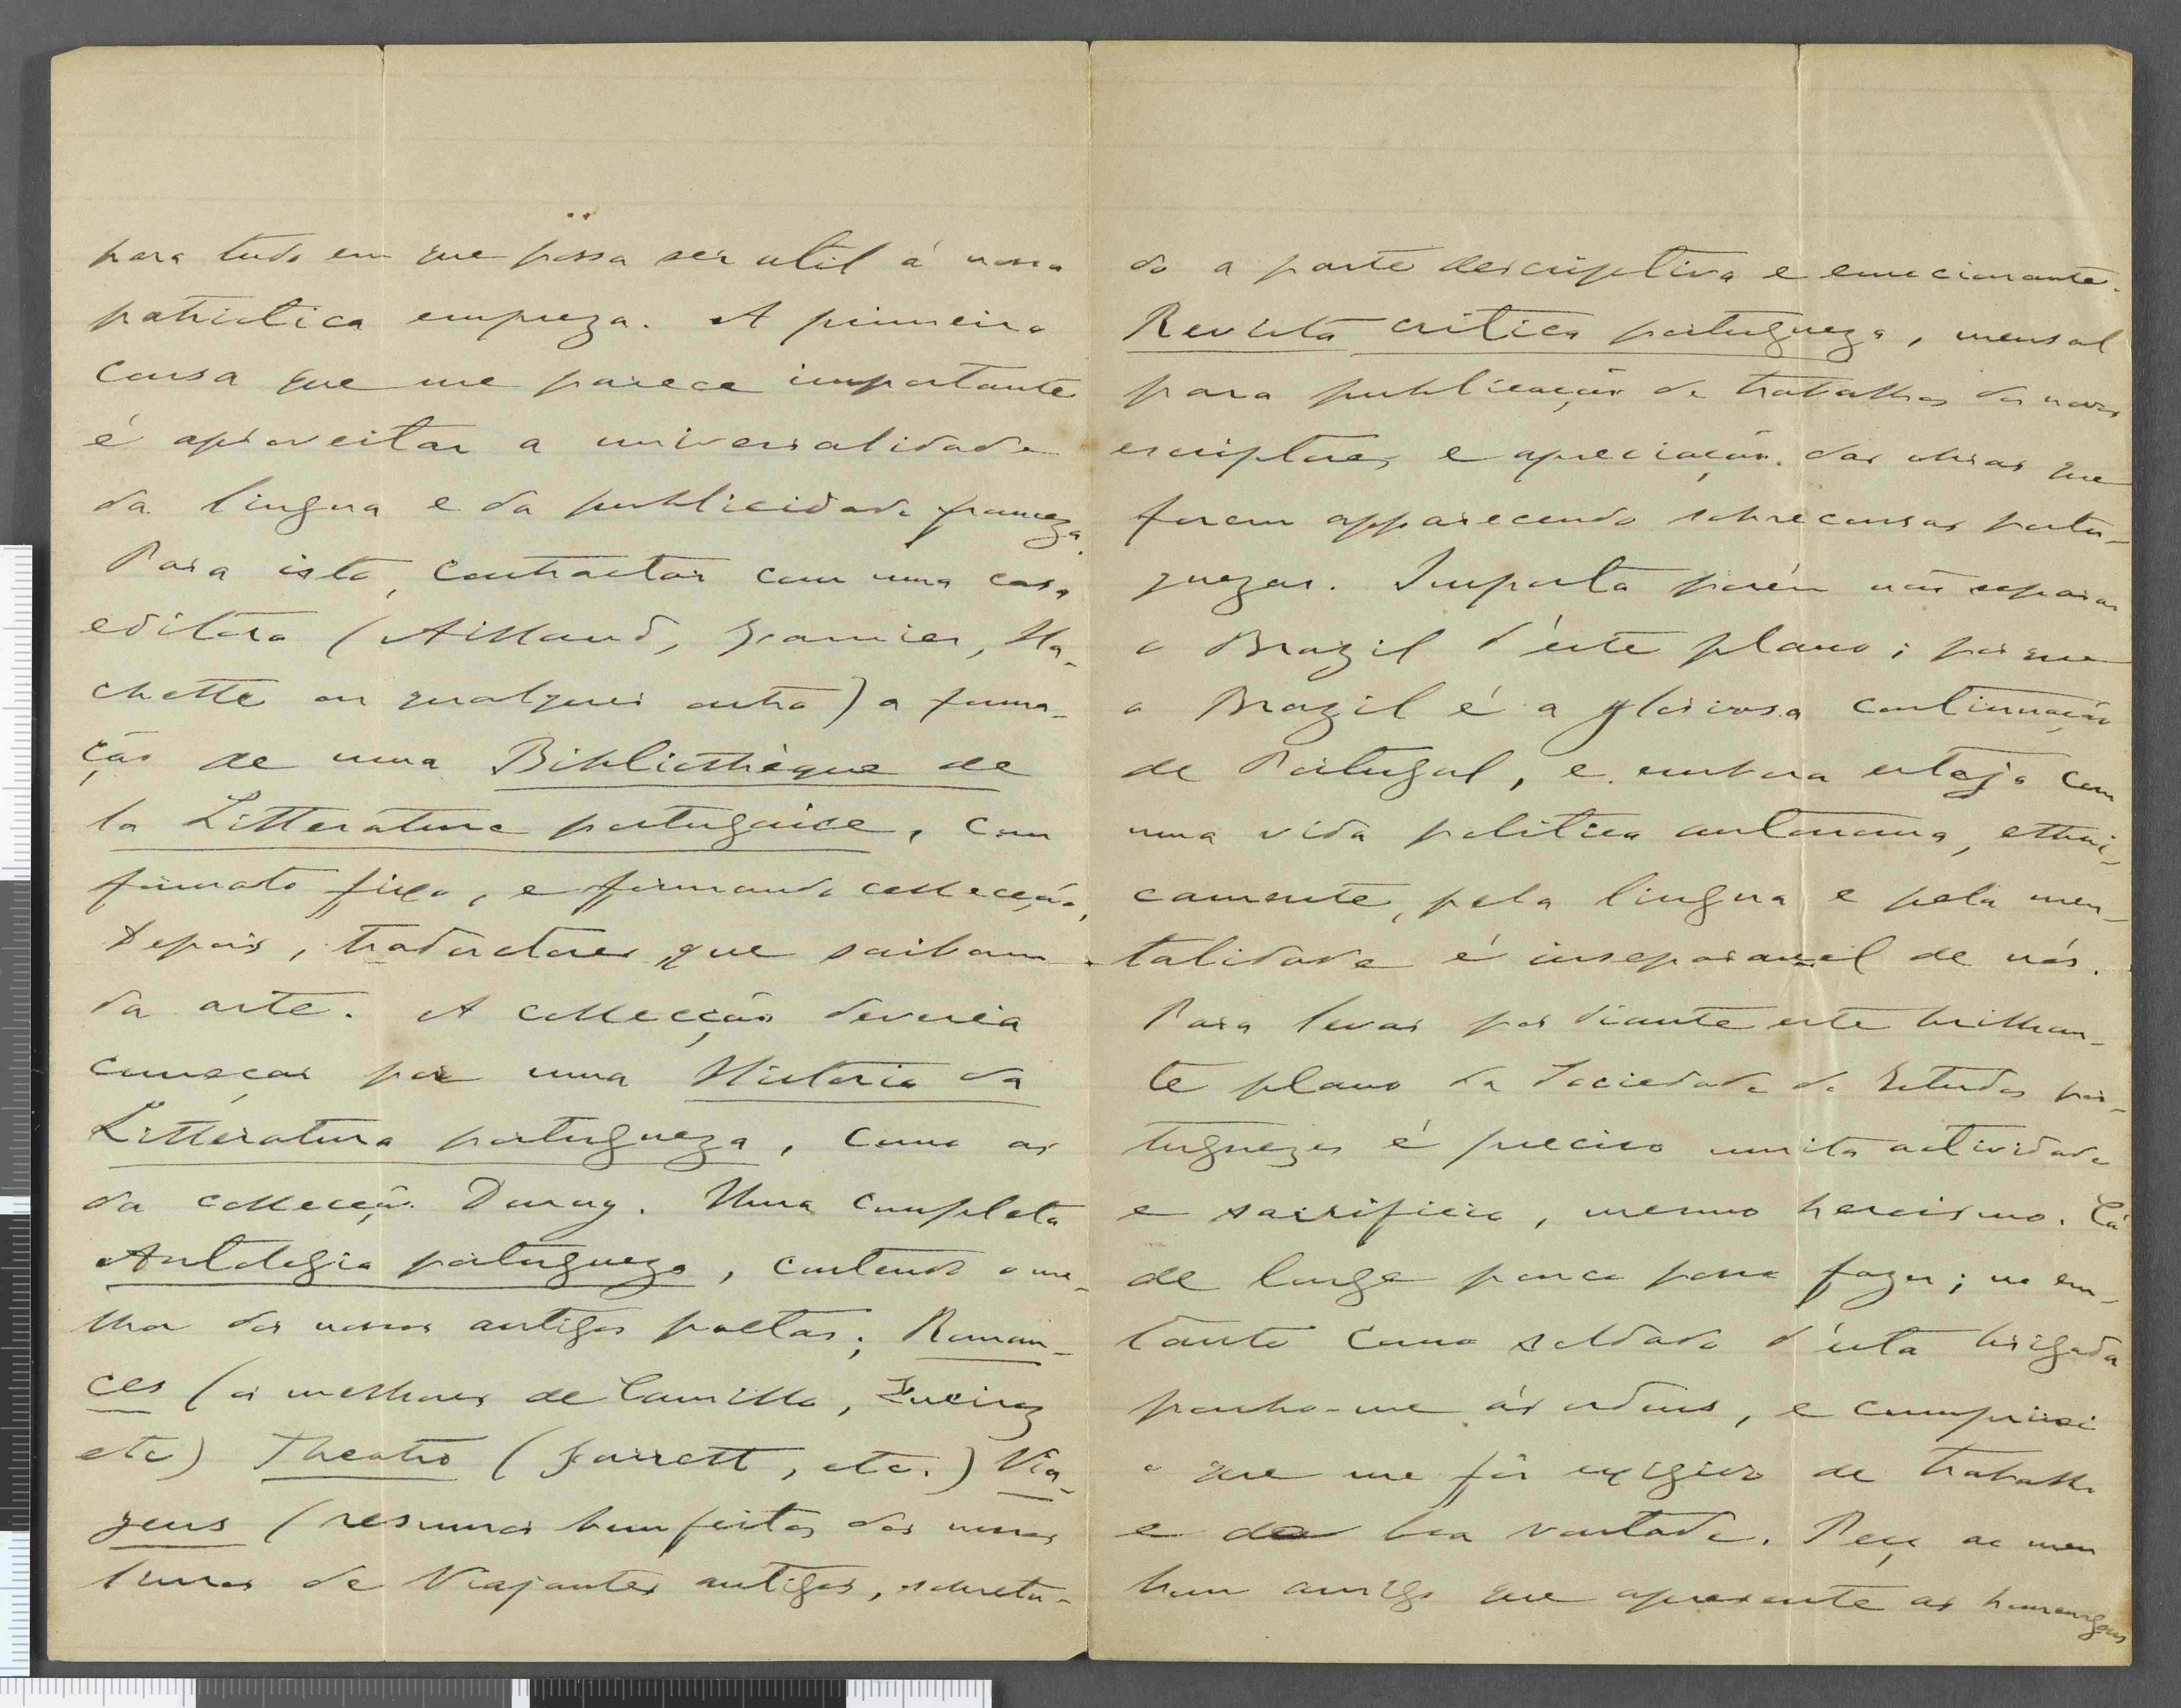 para tudo em que possa ser util á nossa
patriotica empreza. A primeira
cousa que me parece importante
é aproveitar a universalidade
da lingua e da publicidade franceza.
Para isto, contractar com uma casa
editora (Aillaud, Garnier, Ha-
chette ou qualquer outra) a forma-
ção de uma Bibliothèque de
la Litterature portugaise, com
formato fixo, e formando collecção,
Depois, traductores que saibam
da arte. A collecção deveria
começar por uma Historia da
Litteratura portugueza, como as
da collecção Duruy. Uma completa
Antologia portugueza, contendo o me-
lhor dos nossos antigos poetas; Roman-
ces (os melhores de Camillo, Queiroz
etc) Theatro (Garrett, etc.) Via-
gens (resumos bem feitos dos nossos
livros de Viajantes antigos, sobretu-
do a parte descriptiva e emocionante.
Revista critica portugueza, mensal
para publicação de trabalhos dos novos
escriptores e apreciação das obras que
forem apparecendo sobre cousas portu-
guezas. Importa porém não separar
o Brazil d'este plano; porque
o Brazil é a gloriosa continuação
de Portugal, e embora esteja com
uma vida politica autonoma, ethni-
camente, pela lingua e pela men-
talidade é inseparavel de nós.
Para levar por diante este brilhan-
te plano da Sociedade de Estudos por-
tuguezes é preciso muita actividade
e sacrificio, mesmo heroismo. Cá
de longe pouco posso fazer; no em-
tanto como soldado d'esta brigada
ponho-me ás ordens, e cumprirei
o que me fôr exigido de trabalho
e de boa vontade. Peço ao meu
bom amigo que apresente as homenagens